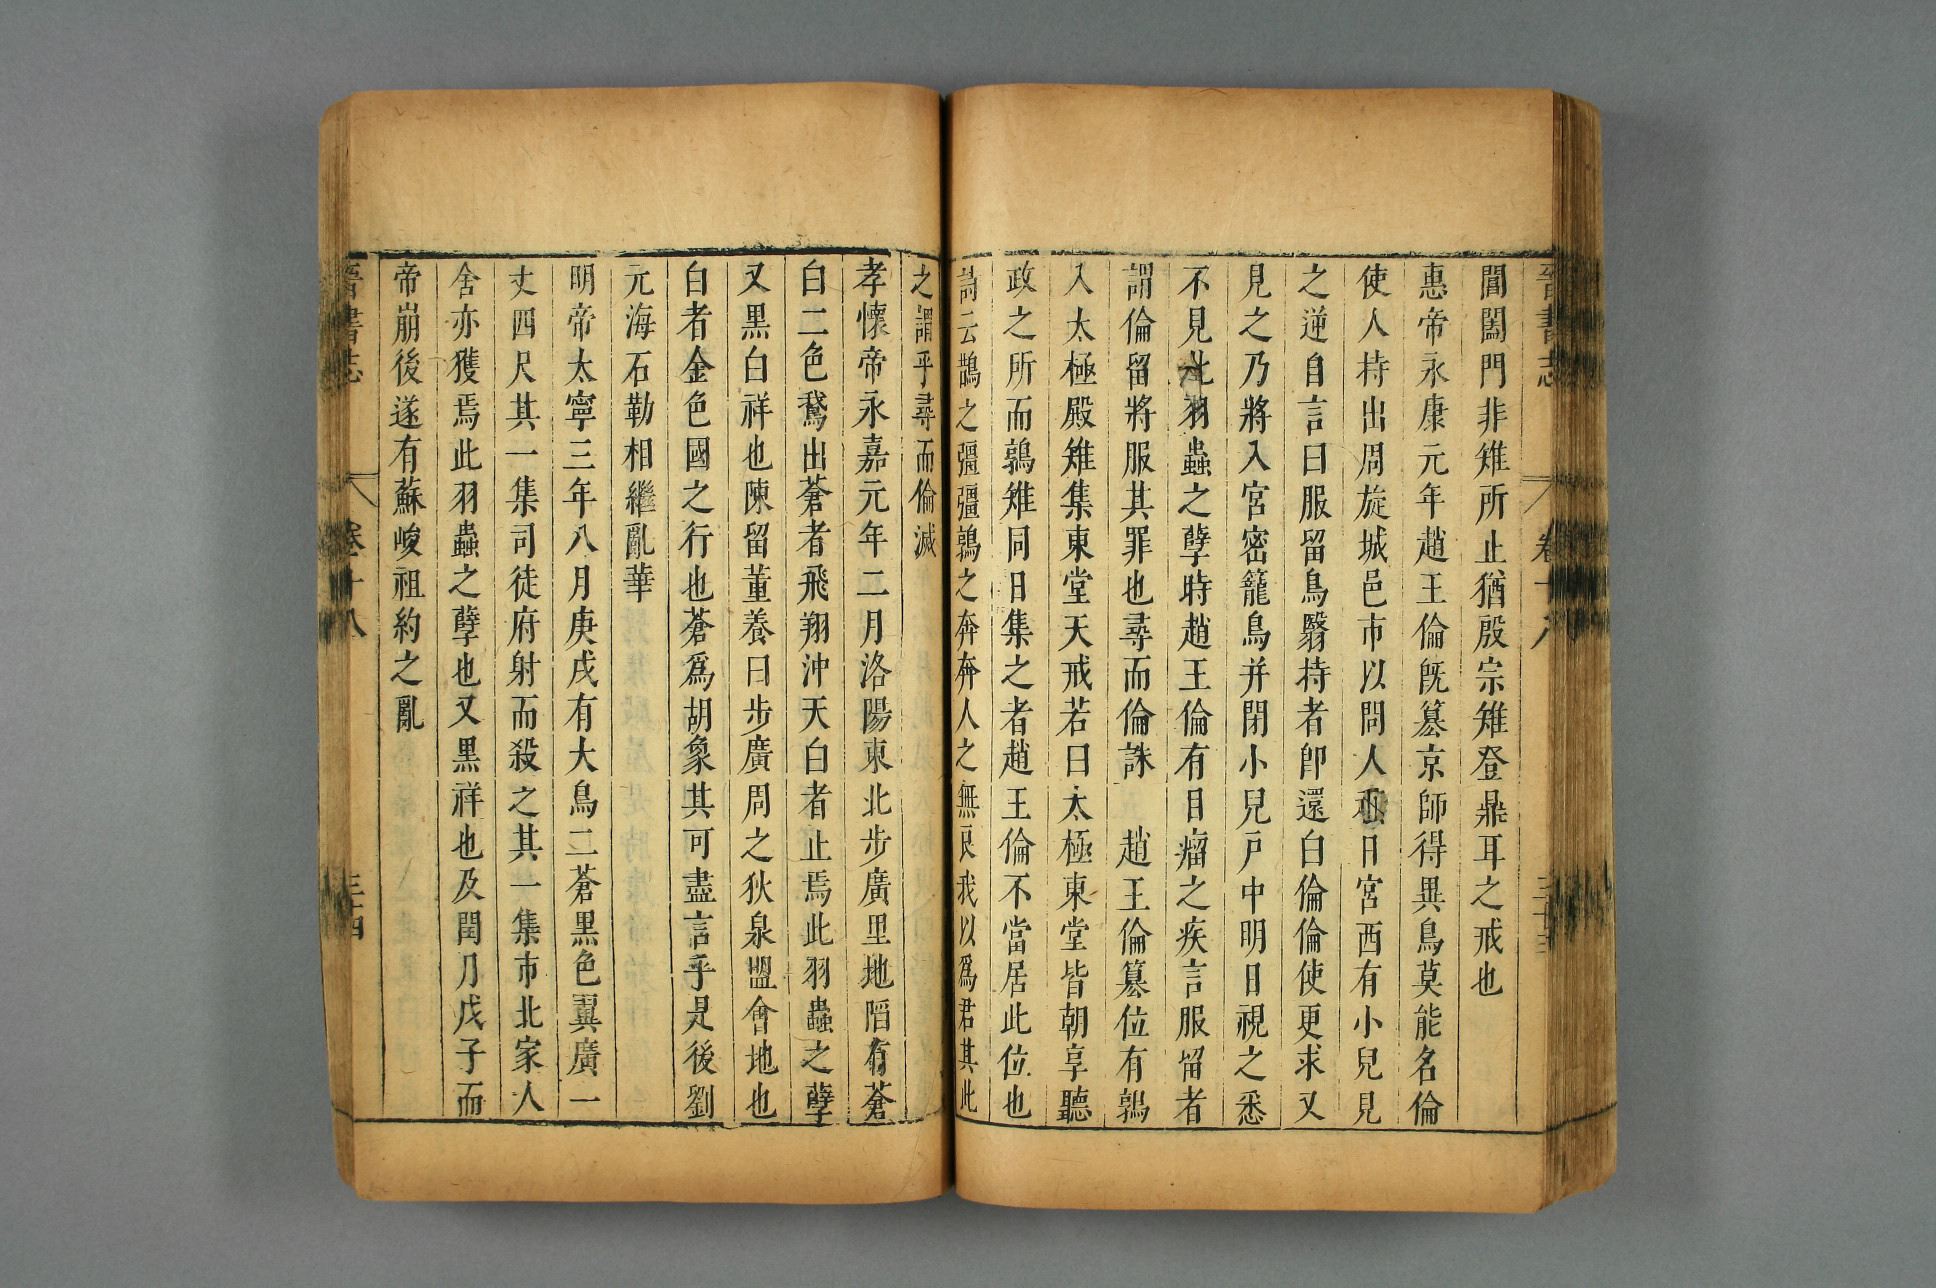 晉書志 卷十八 三十三
閶闔門非雉所止猶殷宗雉登鼎耳之戒也
惠帝永康元年趙王倫旣篡京師得異鳥莫能名倫
使人持出周旋城邑市以問人積日宮西有小兒見
之逆自言曰服留鳥翳持者卽還白倫倫使更求又
見之乃將入宮密籠鳥并閉小兒戶中明日視之悉
不見此羽蟲之孽時趙王倫有目瘤之疾言服留者
謂倫留將服其罪也尋而倫誅 趙王倫篡位有鶉
入太極殿雉集東堂天戒若曰太極東堂皆朝享聽
政之所而鶉雉同日集之者趙王倫不當居此位也
詩云鵲之彊彊鶉之奔奔人之無良我以爲君其此
之謂乎尋而倫滅
孝懷帝永嘉元年二月洛陽東北步廣里地陷有蒼
白二色鵞出蒼者飛翔沖天白者止焉此羽蟲之孽
又黑白祥也陳留董養曰步廣周之狄泉盟會地也
白者金色國之行也蒼爲胡象其可盡言乎是後劉
元海石勒相繼亂華
明帝太寧三年八月庚戌有大鳥二蒼黑色翼廣一
丈四尺其一集司徒府射而殺之其一集市北家人
舍亦獲焉此羽蟲之孽也又黑祥也及閏月戊子而
帝崩後遂有蘇峻祖約之亂
晉書志 卷十八 三十四